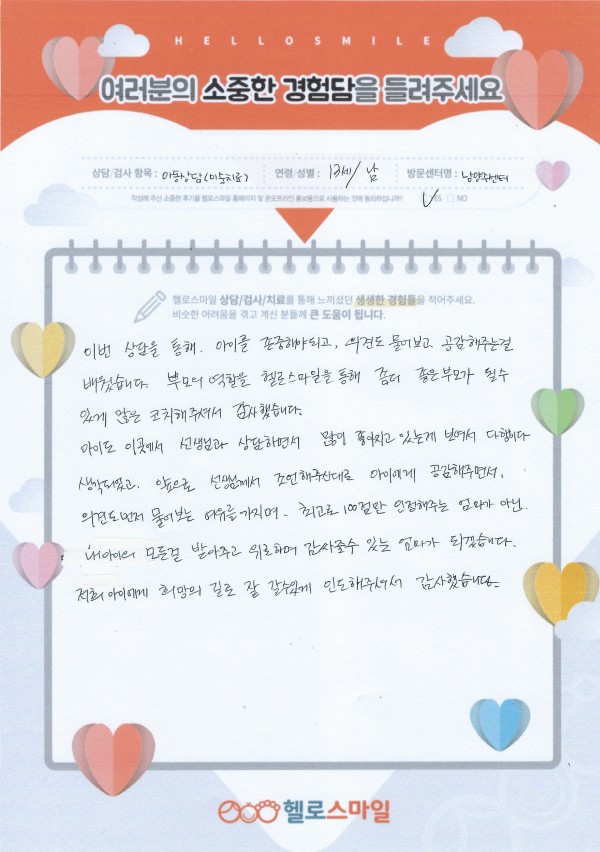 HELLOSMILE
여러분의 소중한 경험담을 들려주세요
상담/검사 항목 : 아동상담(미술치료) 연령/성별 : 13세/남 방문센터명 : 남양주센터
작성해 주신 소중한 후기를 헬로스마일 홈페이지 및 온오프라인 홍보용으로 사용하는 것에 동의하십니까? YES NO
헬로스마일 상담/검사/치료를 통해 느끼셨던 생생한 경험들을 적어주세요.
비슷한 어려움을 겪고 계신 분들께 큰 도움이 됩니다.
이번 상담을 통해. 아이를 존중해야되고, 의견도 물어보고 공감해주는걸
배웠습니다. 부모의 역할을 헬로스마일을 통해 좀더 좋은부모가 될수
있게 많은 코치해주셔서 감사했습니다.
아이도 이곳에서 선생님과 상담하면서 많이 좋아지고 있는게 보여서 다행이다
생각되었고. 앞으로 선생님께서 조언해주신대로 아이에게 공감해주면서,
의견도먼저 물어보는 여유를 가지며. 최고로 100점만 인정해주는 엄마가 아닌.
내아이의 모든걸 받아주고 위로하며 감싸줄수 있는 엄마가 되겠습니다.
저희 아이에게 희망의 길로 잘 갈수있게 인도해주셔서 감사했습니다.
헬로스마일